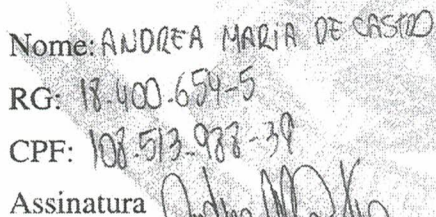 Nome: ANDREA MARIA DE CASTRO
RG: 18.400.654-5
CPF: 108.513.988-39
Assinatura